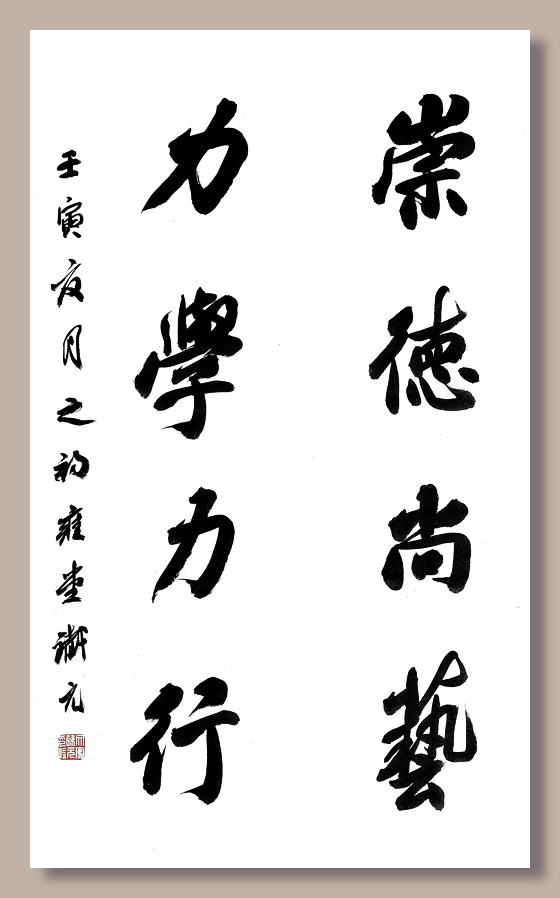 崇德尚藝
力學力行
壬寅夜月之初雍堂谢元